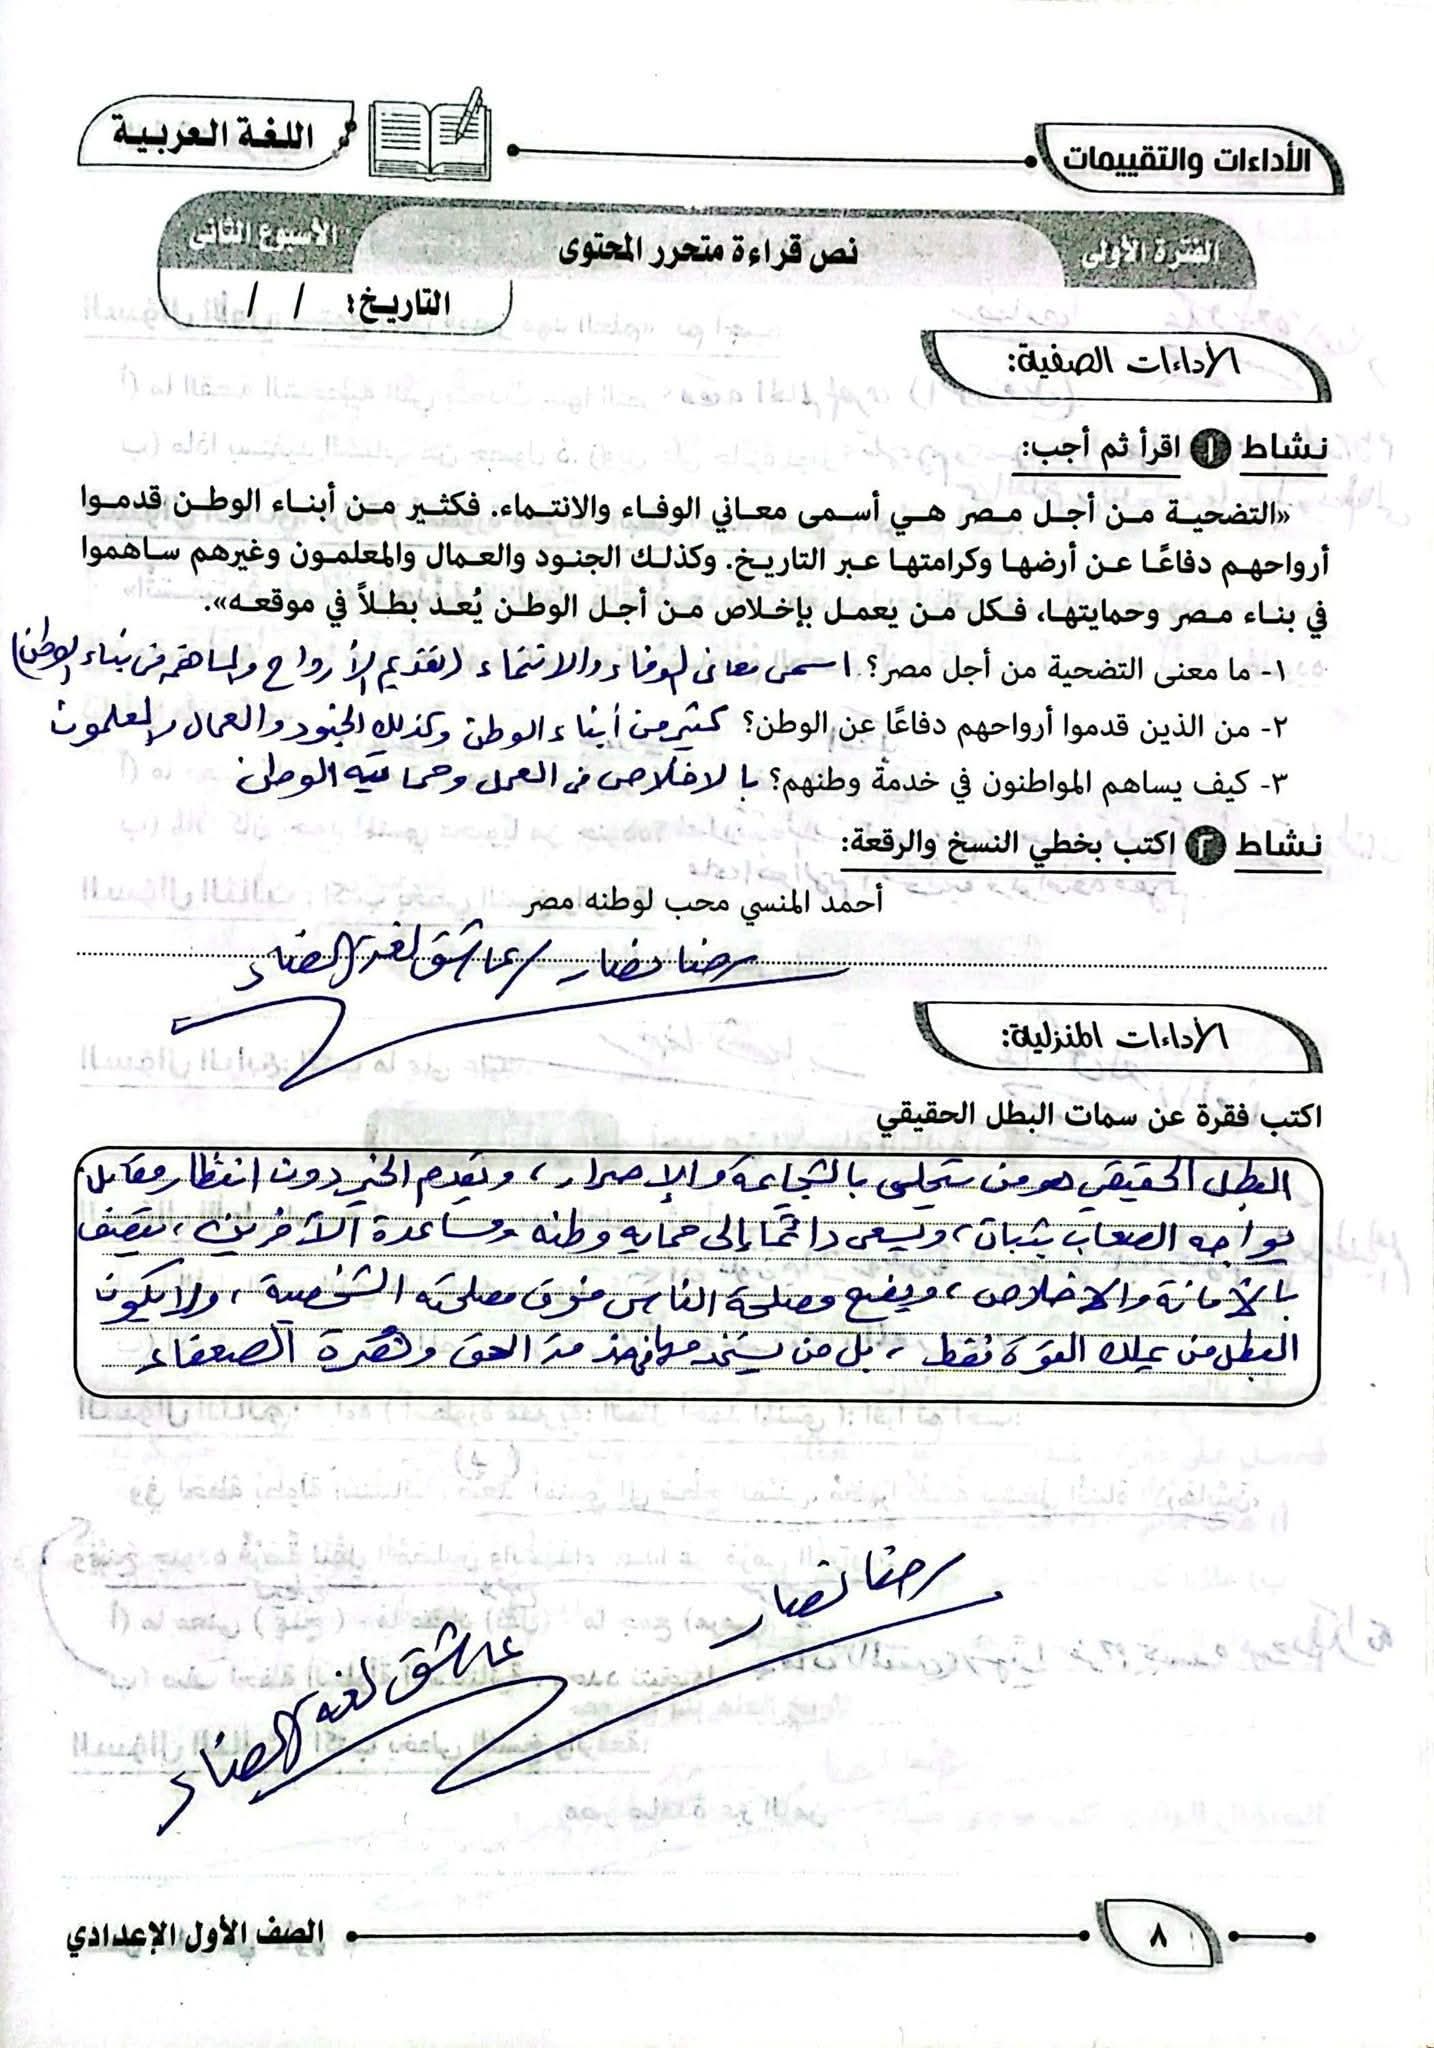 الأداءات والتقييمات
اللغة العربية
الفترة الأولى
نص قراءة متحرر المحتوى
الأسبوع الثاني
التاريخ: / /
الأداءات الصفية:
نشاط ١ اقرأ ثم أجب:
«التضحية من أجل مصر هي أسمى معاني الوفاء والانتماء. فكثير من أبناء الوطن قدموا
أرواحهم دفاعًا عن أرضها وكرامتها عبر التاريخ. وكذلك الجنود والعمال والمعلمون وغيرهم ساهموا
في بناء مصر وحمايتها، فكل من يعمل بإخلاص من أجل الوطن يُعد بطلاً في موقعه».
١- ما معنى التضحية من أجل مصر؟ اسمى معانى الوفاء والانتماء (تقديم الأرواح والمساهمة فى بناء الوطن)
٢- من الذين قدموا أرواحهم دفاعًا عن الوطن؟ كثير من أبناء الوطن وكذلك الجنود والعمال والمعلمون
٣- كيف يساهم المواطنون في خدمة وطنهم؟ بالاخلاص فى العمل وحماية الوطن
نشاط ٢ اكتب بخطي النسخ والرقعة:
أحمد المنسي محب لوطنه مصر
رضا نصار عاشق لغة الضاد
الأداءات المنزلية:
اكتب فقرة عن سمات البطل الحقيقي
البطل الحقيقي هو من يتحلى بالشجاعة والإصرار، ويقدم الخير دون انتظار مقابل
يواجه الصعاب بثبات، ويسعى دائمًا إلى حماية وطنه ومساعدة الآخرين، يتصف
بالأمانة والاخلاص، ويضع مصلحة الناس فوق مصلحته الشخصية، ولا يكون
البطل من يملك القوة فقط، بل من يستخدمها فى خدمة الحق ونصرة الضعفاء
رضا نصار
عاشق لغة الضاد
٨
الصف الأول الإعدادي